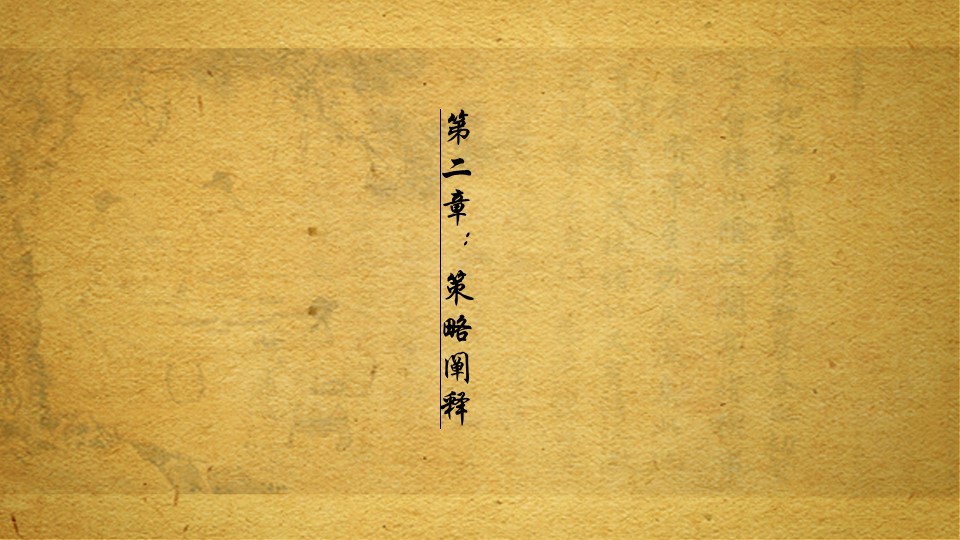 第二章：策略阐释